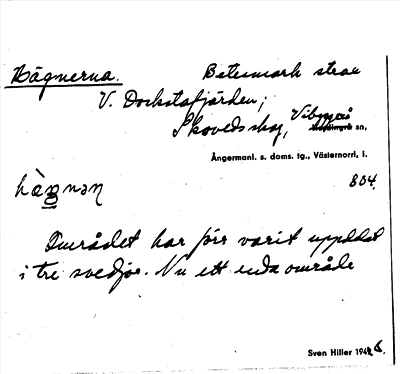 Hägnerna. Betesmark strax
V. Dockstafjärden;
Skovedsskog, Vibyggerå
sn,
Ångermanl. s. doms. tg., Västernorrl. l.
hä̀gnən 804.
Området har förr varit uppdelat
i tre svedjor. Nu ett enda område
Sven Hiller 1946.